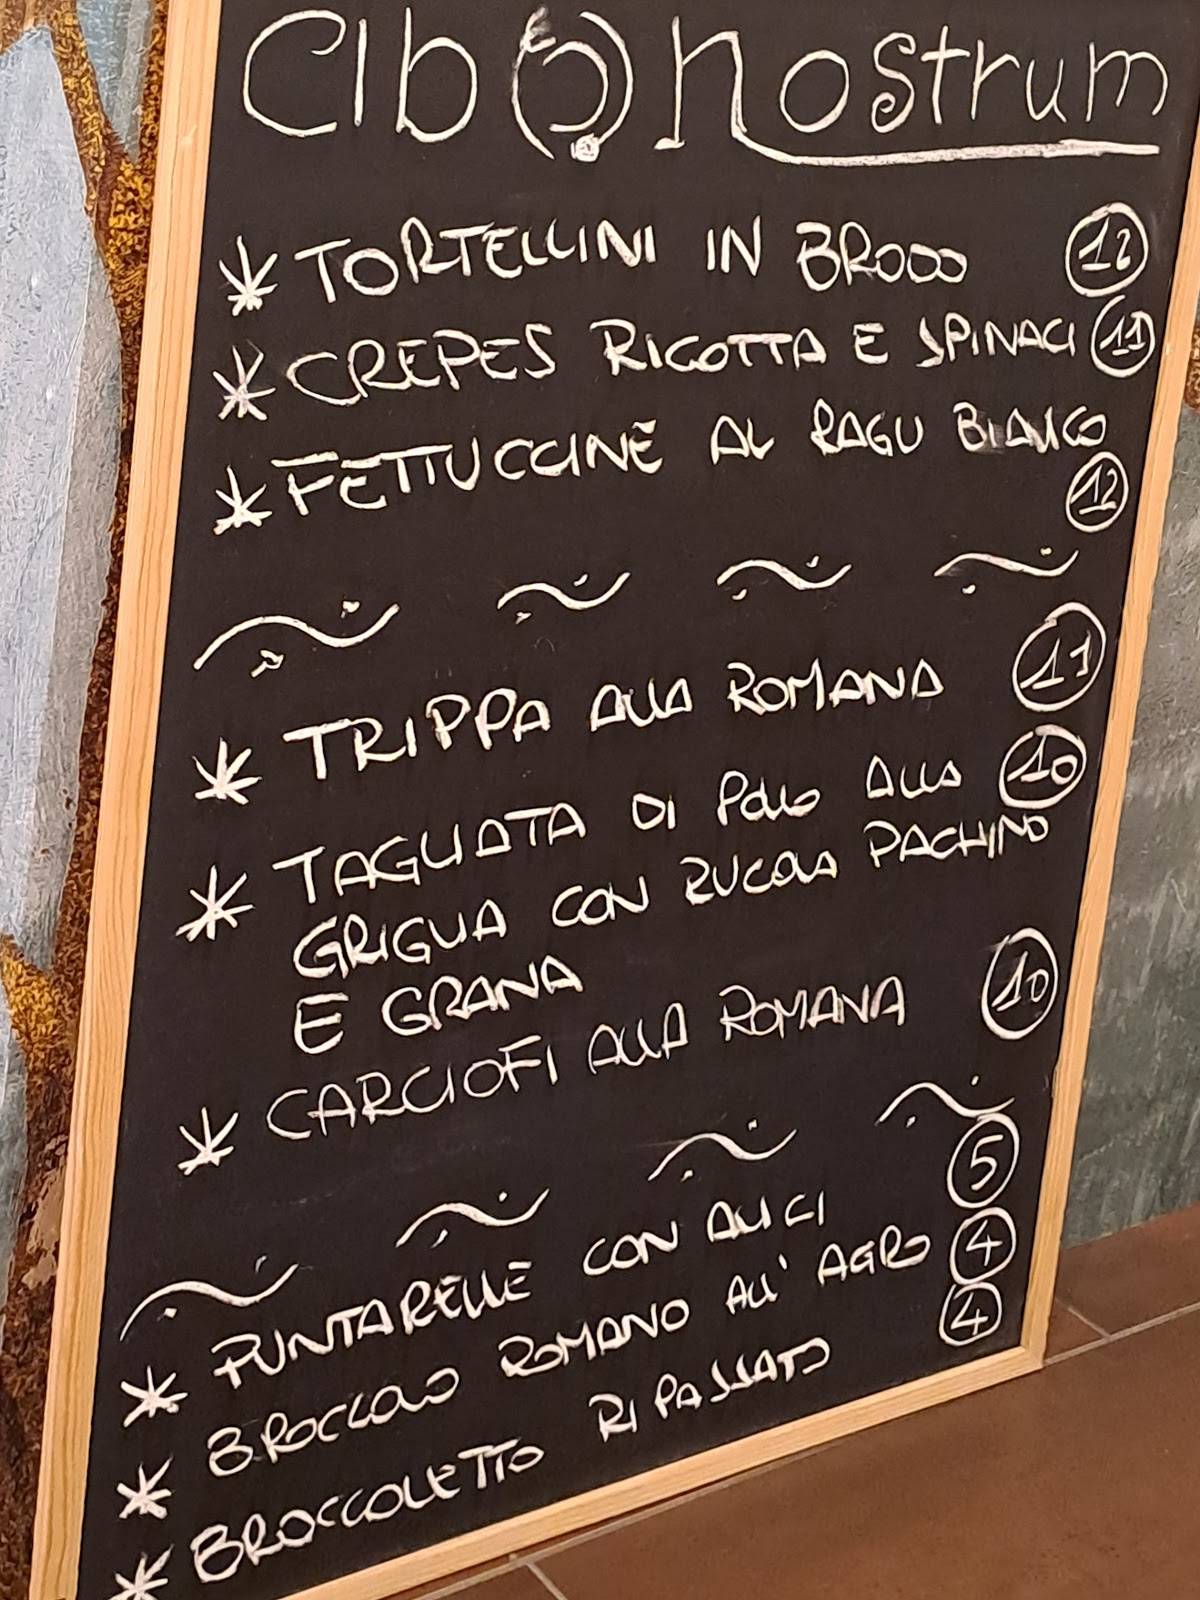 Cibo nostrum
TORTELLINI IN BRODO 12
CREPES RICOTTA E SPINACI 11
FETTUCCINE AL RAGU BIANCO
12
TRIPPA ALLA ROMANA 11
TAGLIATA DI POLLO ALLA 10
GRIGLIA CON RUCOLA PACHINO
E GRANA
CARCIOFI ALLA ROMANA 10
PUNTARELLE CON ALICI 5
BROCCOLO ROMANO ALL' AGRO 4
BROCCOLETTO RIPASSATO 4